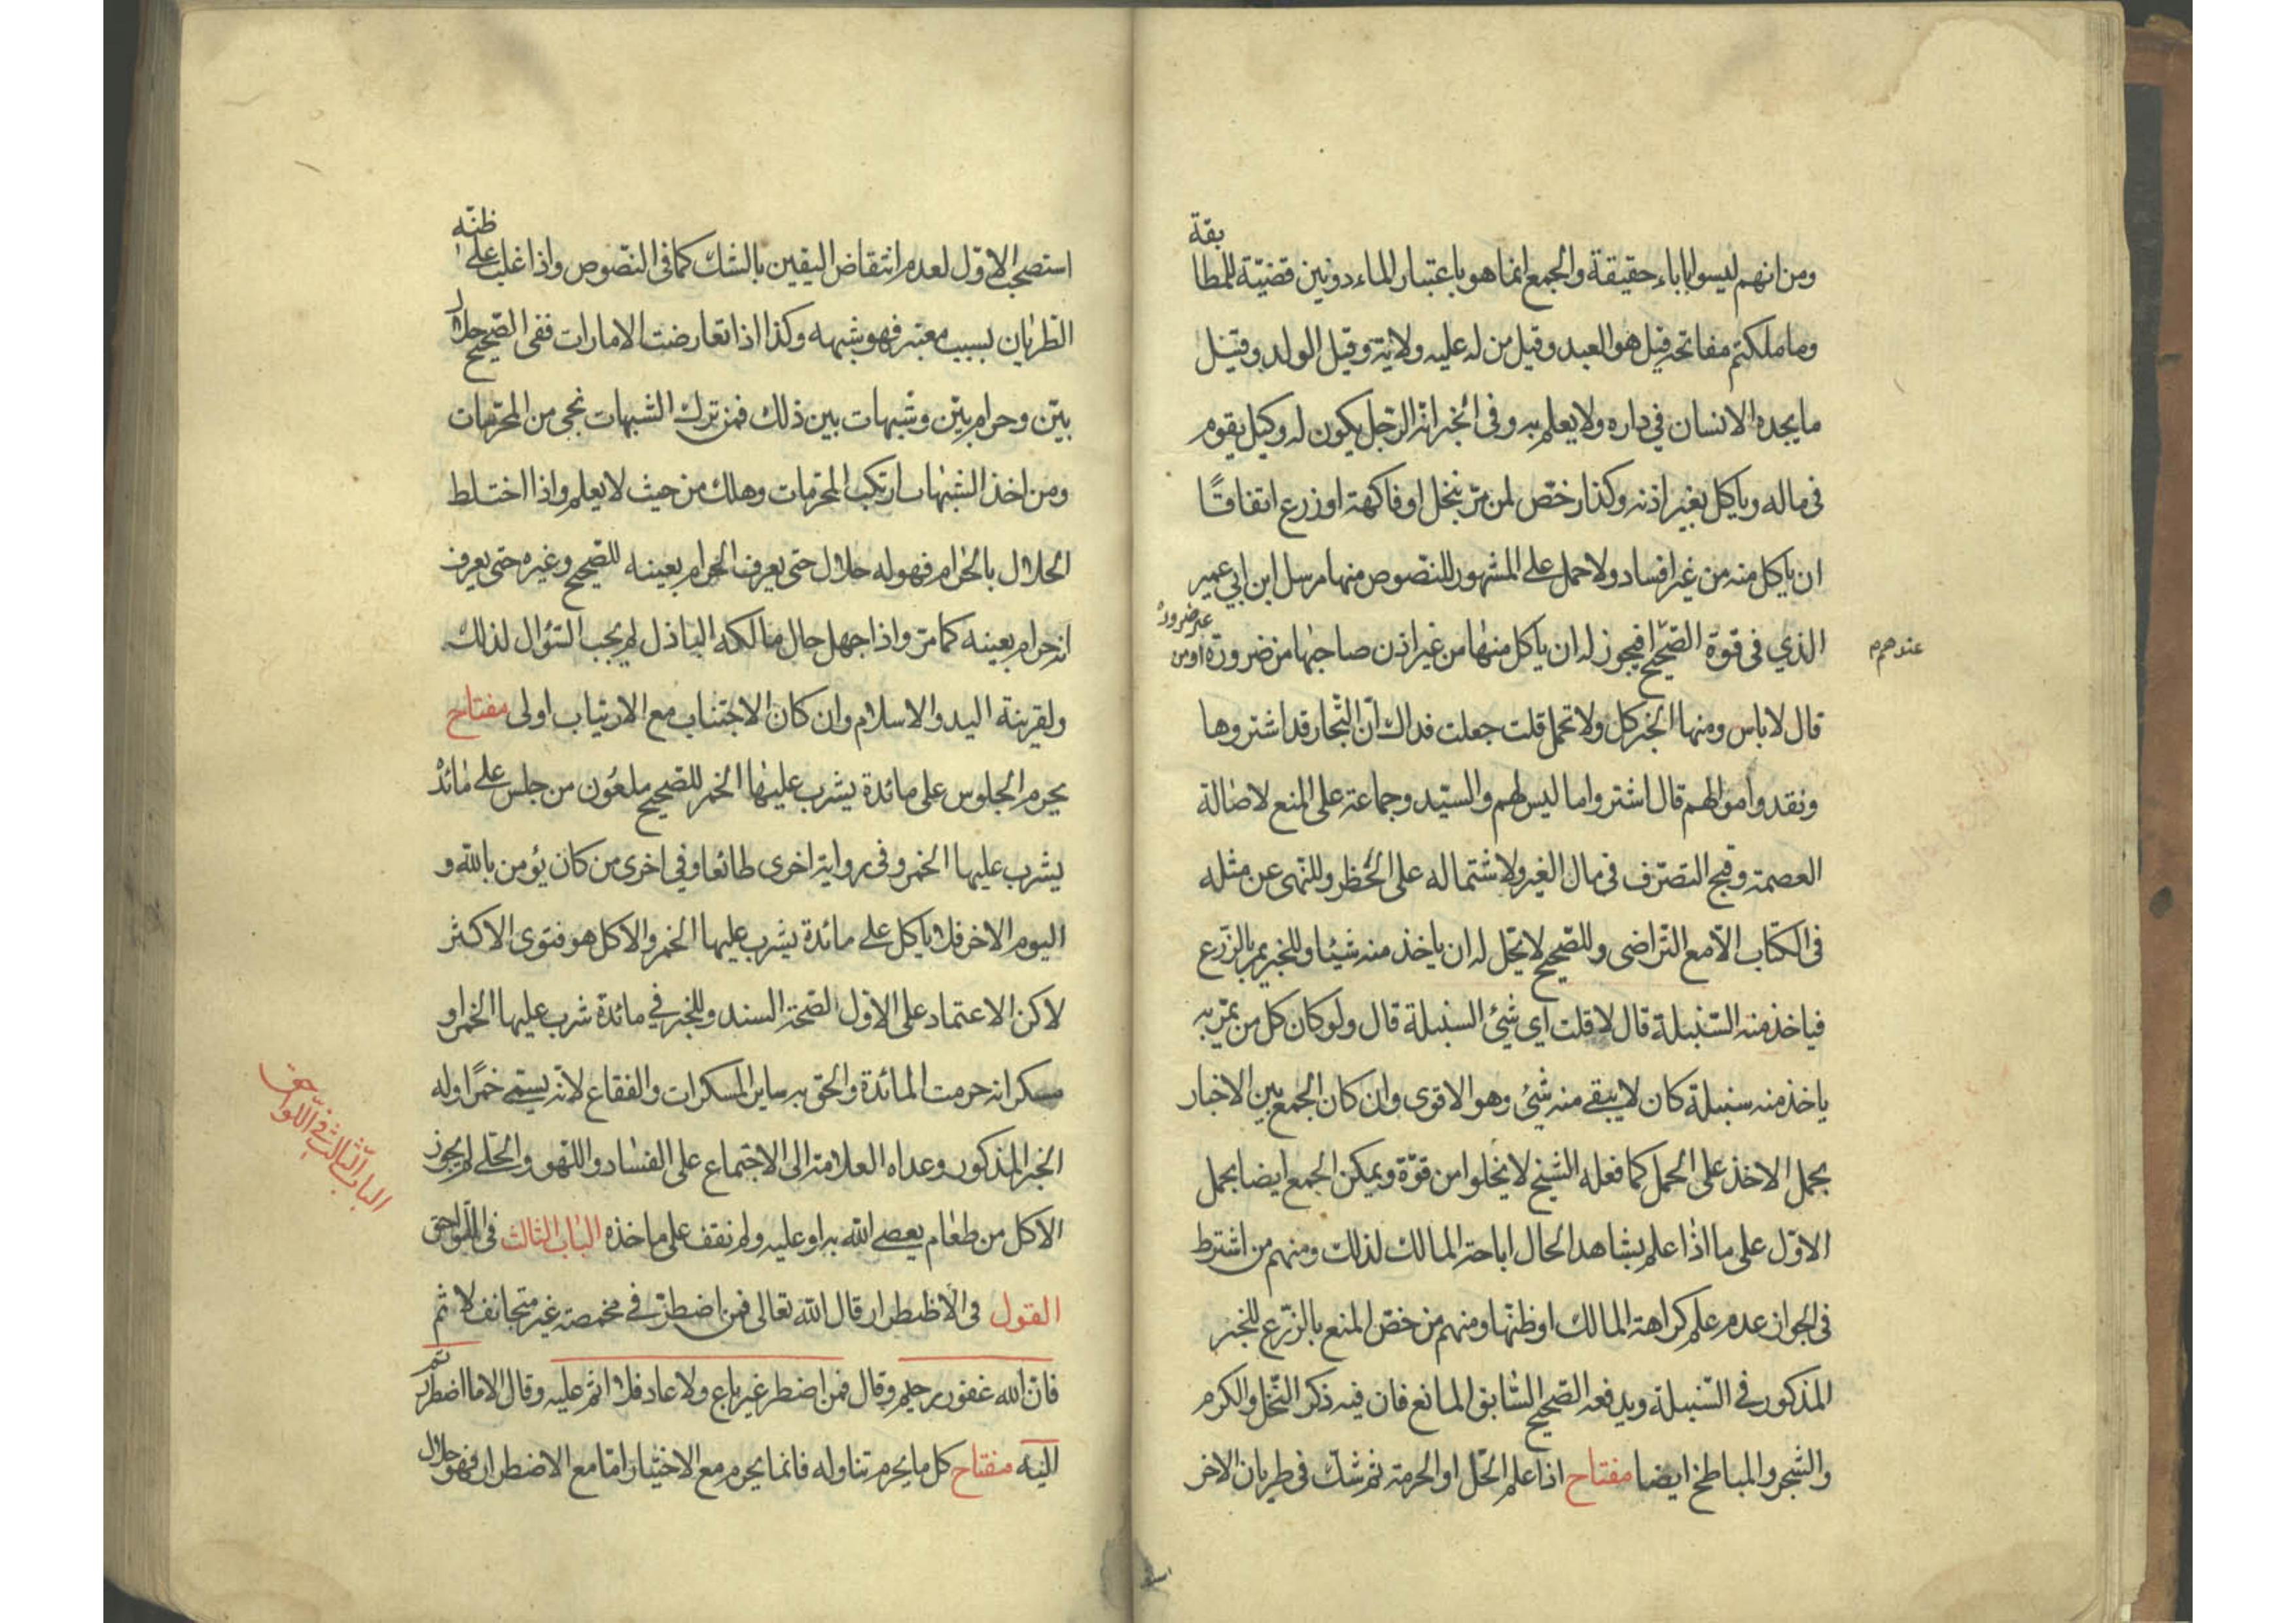 ومن انهم ليسوا باباء حقيقة والجمع انما هو باعتبار الماء دونين قضيّة للمطابقة
وما ملكتم مفاتحه قيل هو العبد وقيل من له عليه ولاية وقيل الولد وقيل
ما يجده الانسان في داره ولا يعلم به وفى الخبر انه الرّجل يكون له وكيل يقوم
فى ماله وياكل بغير اذنه وكذا رخّص لمن مرّ بنخل او فاكهة او زرع اتفاقًا
ان ياكل منه من غير افساد ولا حمل على المشهور للنصوص منها مرسل ابن ابي عمير
الذي فى قوة الصّحيح افيجوز له ان ياكل منها من غير اذن صاحبها من ضرورة او من غير ضرورة
عندهم
قال لا باس ومنها الخبر كل ولا تحمل قلت جعلت فداك انّ التّجار قد اشتروها
ونقدوا اموالهم قال اشتروا ما ليس لهم والسيّد وجماعة على المنع لاصالة
العصمة وقبح التصرّف فى مال الغير ولاشتماله على الحظر وللنهى عن مثله
فى الكتاب الّا مع التّراضى وللصّحيح لا يحّل له ان ياخذ منه شيئا وللخبر يمر بالزّرع
فياخذ منه السّنبلة قال لا قلت اى شئ السنبلة قال ولو كان كل من يمّر به
ياخذ منه سنبلة كان لا يبقى منه شئ وهو الاقوى وان كان الجمع بين الاخبار
بحمل الاخذ على الحمل كما فعله الشيخ لا يخلوا من قوّة ويمكن الجمع ايضا بحمل
الاوّل على ما اذا علم بشاهد الحال اباحة المالك لذلك ومنهم من اشترط
فى الجواز عدم علم كراهة المالك او ظنّها ومنهم من خصّ المنع بالزّرع للخبر
المذكور فى السّنبلة ويدفعه الصّحيح السّابق المانع فان فيه ذكر النّخل والكرم
والشجر والمباطخ ايضا مفتاح اذا علم الحّل او الحرمة ثم شكّ فى طريان الاخر
استصحب الاوّل لعدم انتقاض اليقين بالشك كما فى النصّوص واذا غلب على ظنّه
الطّريان بسبب معتبر فهو شبهه وكذا اذا تعارضت الامارات ففى الصّحيح حلال
بيّن وحرام بيّن وشبهات بين ذلك فمن ترك الشبهات نجى من المحرّمات
ومن اخذ الشبهات ارتكب المحرّمات وهلك من حيث لا يعلم واذا اختلط
الحلال بالحرام فهو له حلال حتى يعرف الحرام بعينه للصّحيح وغيره حتى يعرف
انه حرام بعينه كما مرّ واذا جهل حال مالكه الباذل لم يجب السّؤال لذلك
ولقرينة اليد والاسلام وان كان الاجتناب مع الارتياب اولى مفتاح
يحرم الجلوس على مائدة يشرب عليها الخمر للصّحيح ملعون من جلس على مائدة
يشرب عليها الخمر وفى رواية اخرى طائعا وفي اخرى من كان يؤمن بالله و
اليوم الاخر فلا ياكل على مائدة يشرب عليها الخمر والاكل هو فتوى الاكثر
لاكن الاعتماد على الاوّل لصّحة السند وللخبر في مائدة شرب عليها الخمر او
مسكر انه حرمت المائدة والحق به ساير المسكرات والفقاع لانّه يسمّى خمرًا وله
الخبر المذكور وعداه العلامة الى الاجتماع على الفساد واللّهو والحّلى لم يجوز
الاكل من طعام يعصى الله به او عليه ولم نقف على ماخذه الباب الثالث فى اللّواحق
الباب الثّالث فى اللّواحق
القول فى الاظطرار قال الله تعالى فمن اضطرّ في مخمصة غير متجانف لاثم
فانّ الله غفور رحيم وقال فمن اضطر غير باغ ولا عاد فلا اثم عليه وقال الا ما اضطررتم
اليه مفتاح كل ما يحرم تناوله فانما يحرم مع الاختيار امّا مع الاضطرار فهو حلال